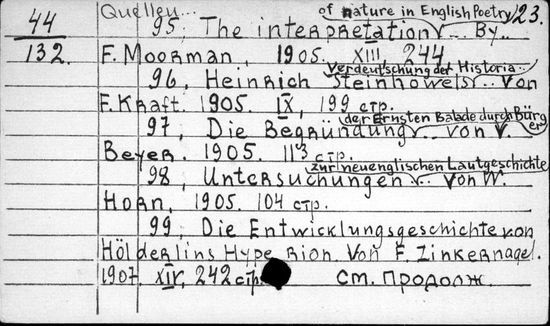 Quellen... 23.
44
132.
of nature in English Poetry
95; The interpretation... By..
F. Moorman, 1905. XIII, 244
Verdeutschung der Historia..
96, Heinrich Steinhöwels... von
F. Kraft. 1905. IX, 199 стр.
der Ernsten Balade durch Bürger
97; Die Begründung... von V.
Beyer. 1905. 113 стр.
zur neuenglischen Lautgeschichte
98, Untersuchungen... von W.
Horn, 1905. 104 стр.
99; Die Entwicklungsgeschichte von
Hölderlins Hyperion. Von F. Zinkernagel.
1907. XIV, 242 стр. См. Продолж.